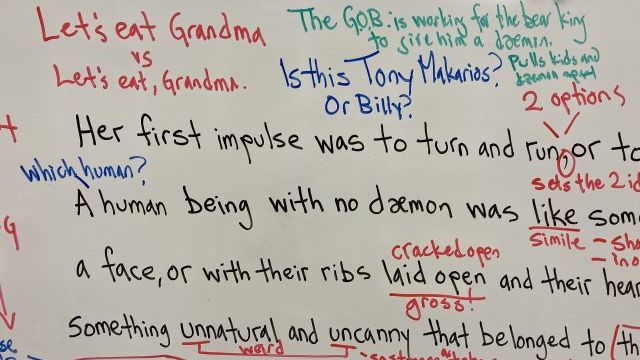 Let's eat Grandma
vs
Let's eat, Grandma.
The G.O.B. is working for the bear king
to give him a dæmon.
pulls kids and
daemon apart
Is this Tony Makarios?
Or Billy?
2 options
Her first impulse was to turn and run, or to
which human?
sets the 2 id
A human being with no dæmon was like som
simile - sho
- in o
cracked open
a face, or with their ribs laid open and their hear
gross!
Something unnatural and uncanny that belonged to (th
weird